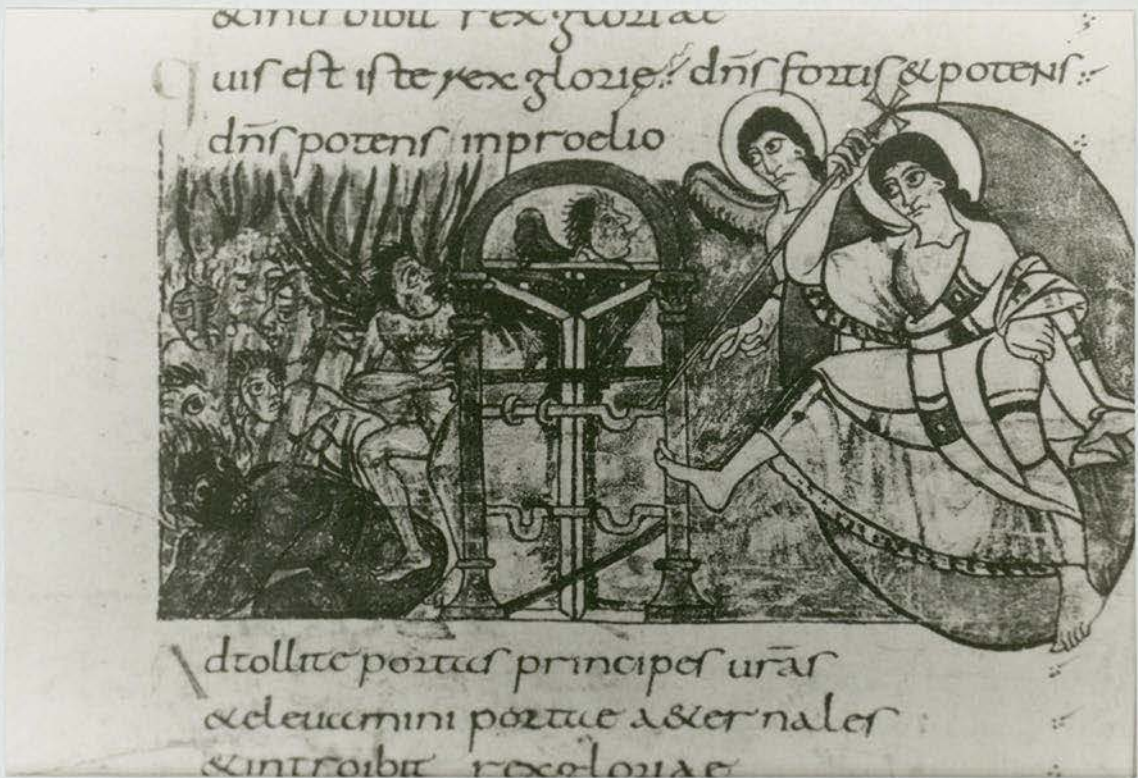 &introibit rex gloriae
Quis est iste rex glorię? dn̄s fortis & potens
dn̄s potens inproelio
Adtollite portas principes ur̄as
&eleuamini portae a&ernales
&introibit rex gloriae